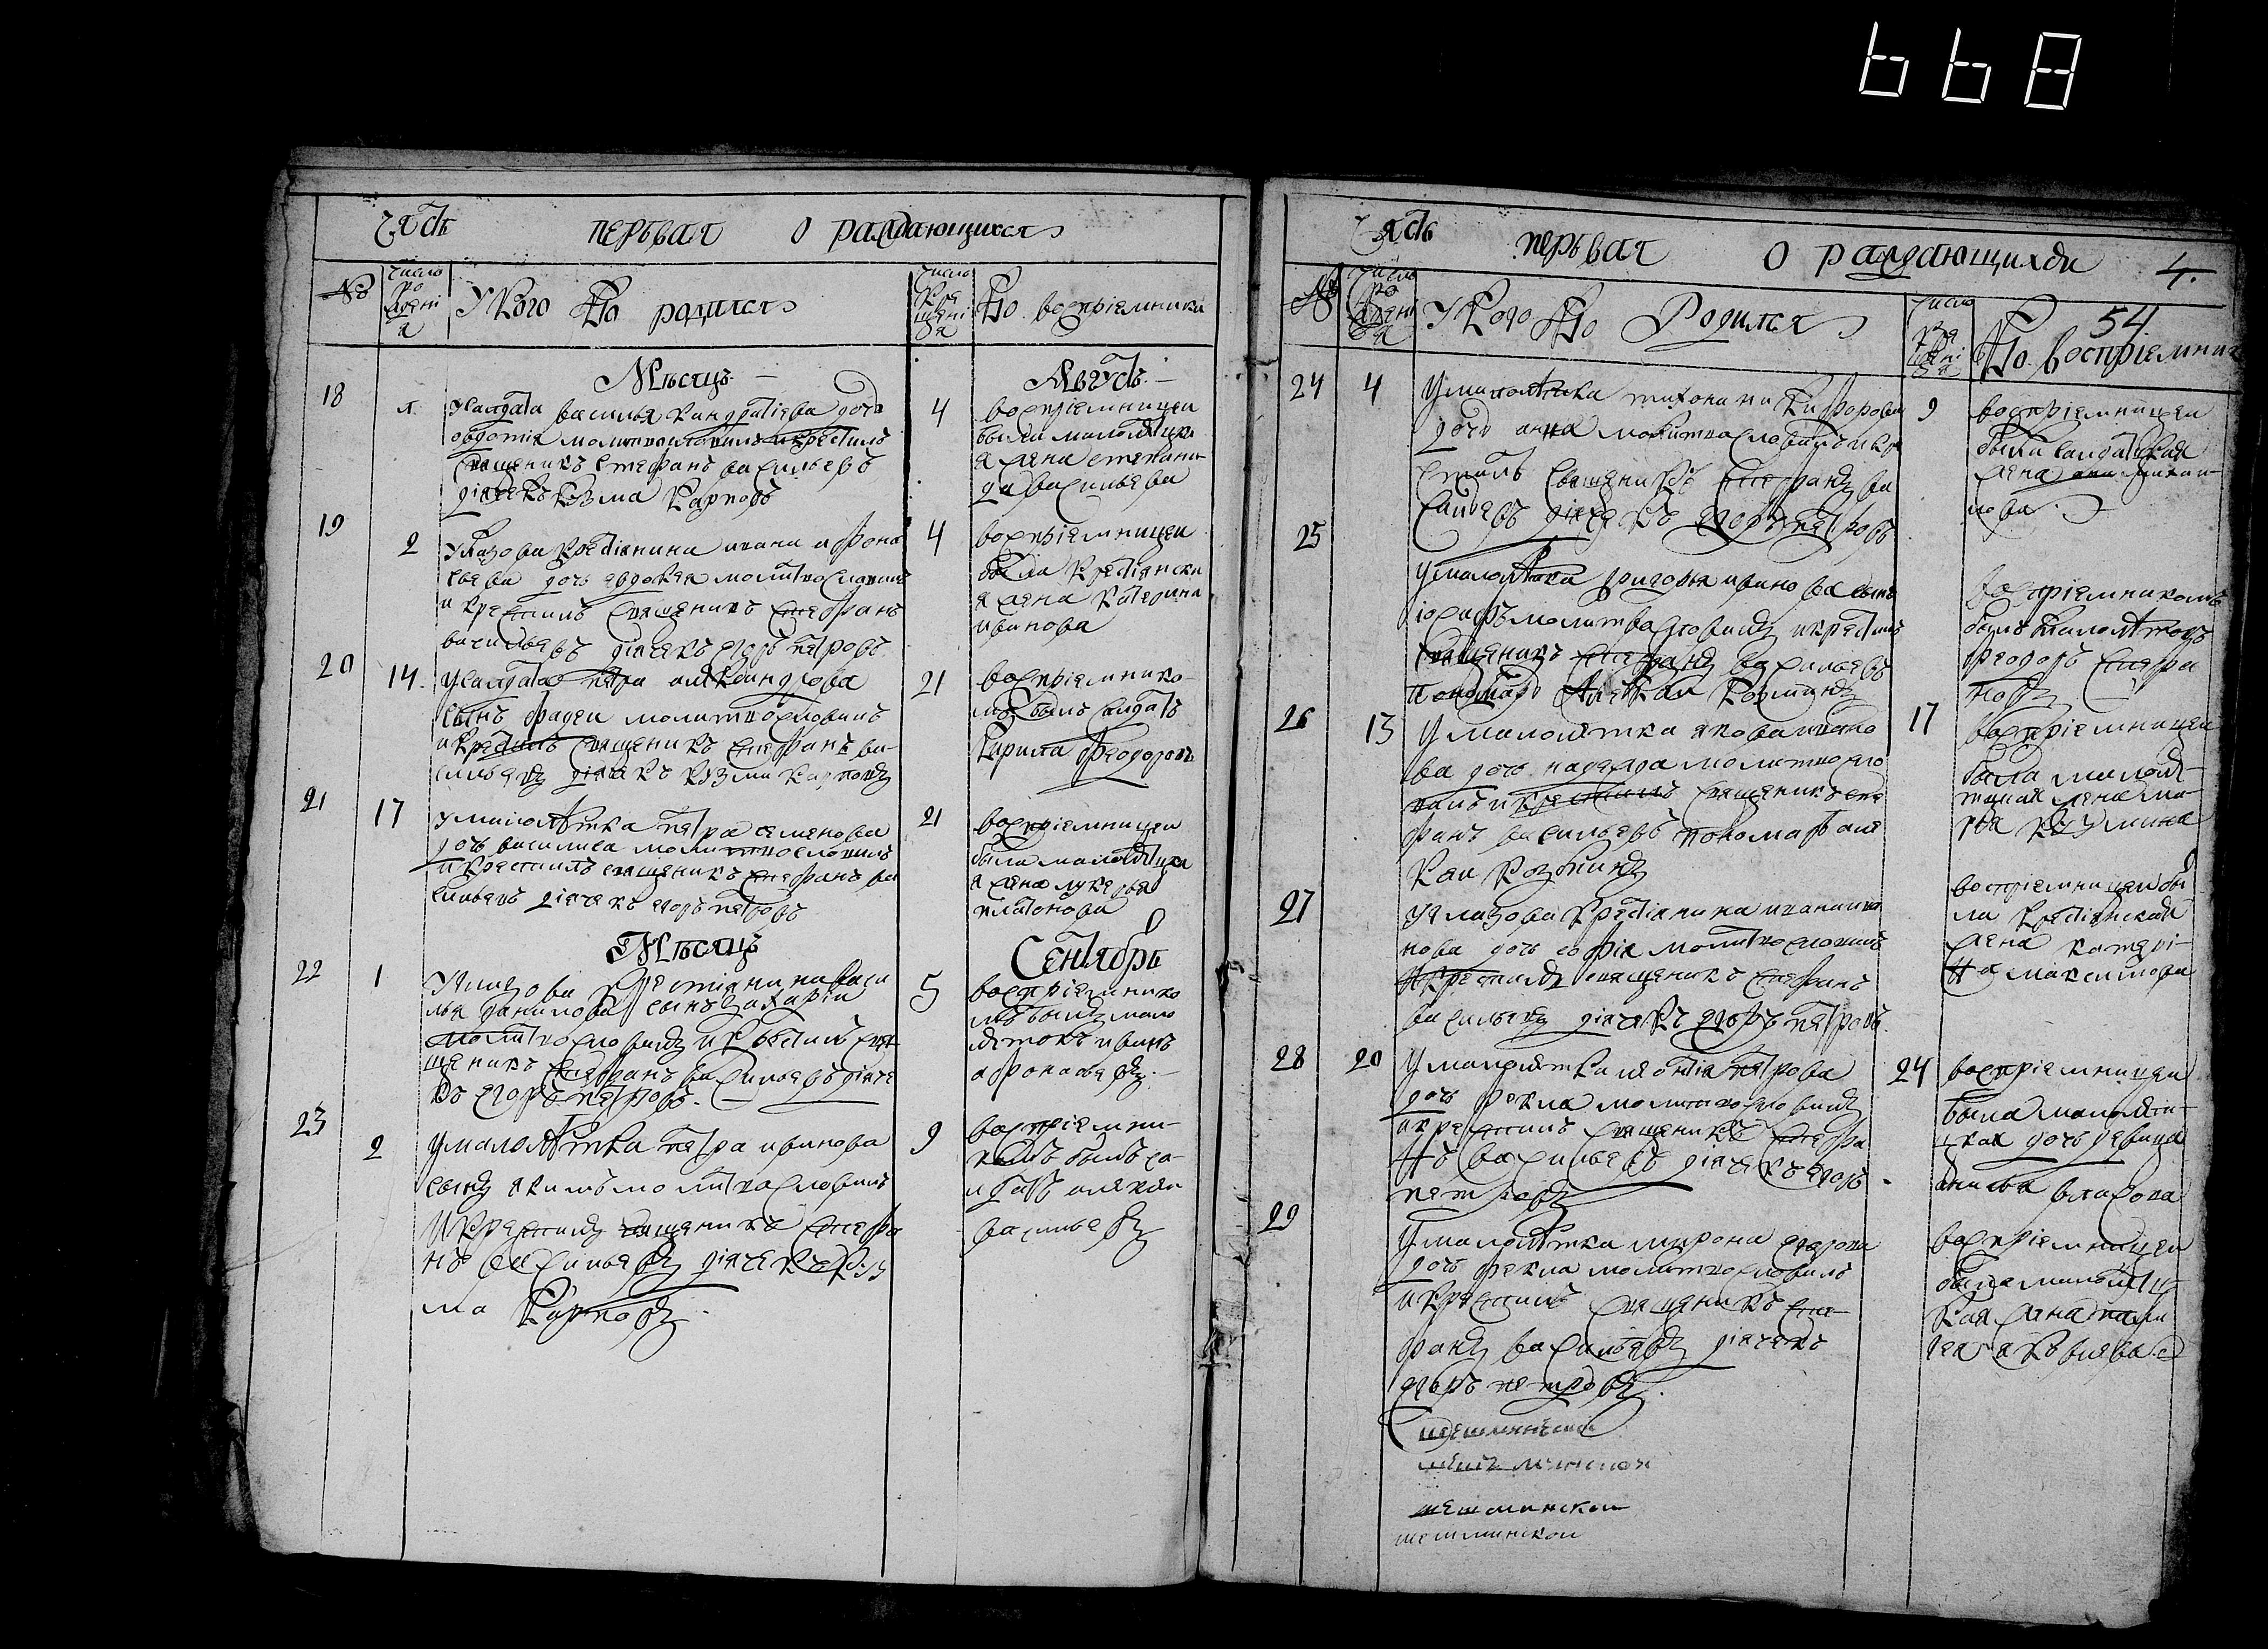 668
часть первая о раждающихся
№ число рожденія
У кого кто родился
число крещенія
Кто воспріемники
Мѣсяцъ Августъ
18
У салдата василья кандратіева дочь
овдотія молитвословилъ и крестилъ
священникъ стефанъ васильевъ
дьячекъ козма карповъ
4
воспріемницеи
была малолятцка
я жена степани
да васильева
19 2
крестіянина ивана афона
сьева дочь авдокея молитвословилъ
и крестилъ священникъ стефанъ
васильевъ дьячекъ егоръ петровъ
4
воспріемницеи
была крестіянска
я жена катерина
иванова
20 14
У салдата петра александрова
сынъ фадеи молитвословилъ
и крестилъ священникъ стефанъ ва-
сильевъ дьячекъ козма карповъ
21
воспріемнико-
мъ былъ салдатъ
кирила феодоровъ
21 17
У малолятка петра семенова
дочь василиса молитвословилъ
и крестилъ священникъ стефанъ ва
сильевъ дьячекъ егоръ петровъ
21
воспріемницеи
была малолятцка
я жена лукерья
платонова
Мѣсяцъ Сентябрь
22 1
крестіянина васи
лья данилова сынъ захарія
молитвословилъ и крестилъ свя
щеникъ стефанъ васильевъ дьяче
къ егоръ петровъ
5
воспріемнико
мъ былъ мало
лятокъ иванъ
афонасьевъ
23 2
У малолятка петра иванова
сынъ якимъ молитвословилъ
и крестилъ священикъ стефа
нъ васильевъ дьячекъ коз
ма карповъ
9
воспріемни-
комъ былъ са-
лдатъ алексеи
васильевъ
часть первая о раждающихся 4.
№ число рожденія
У кого кто Родился
число крещенія
54
Кто воспріемник
24 4
У малолятка тихона никифорова
дочь анна молитвословилъ и кре
стилъ священикъ стефанъ ва
сильевъ дьячекъ егоръ петровъ
9
воспріемницеи
была салдатская
жена михаи-
лова
25
У малолятка григорья иванова сынъ
іосафъ молитвословилъ и крестилъ
священикъ стефанъ васильевъ
пономарь алексеи козминъ
воспріемникомъ
былъ малолятокъ
феодоръ стефа
новъ
26 13
У малолятка якова ивано
ва дочь надежда молитвосло
вилъ и крестилъ священикъ сте
фанъ васильевъ пономарь але
ксеи козминъ
17
воспріемницеи
была малолят-
цкая жена ма-
рья кузмина
27
крестіянина ивана ива
нова дочь софія молитвословилъ
и крестилъ священикъ стефанъ
васильевъ дьячекъ егоръ петровъ
воспріемницеи бы
ла крестіянская
жена катери-
на максимова
28 20
У малолятка леонтія петрова
дочь фекла молитвословилъ
и крестилъ священикъ стефа
нъ васильевъ дьячекъ егоръ
петровъ
24
воспріемницеи
была малолят-
цкая дочь девица
власова
29
У малолятка мирона егорова
дочь фекла молитвословилъ
и крестилъ священикъ сте-
фанъ васильевъ дьячекъ
егоръ петровъ
воспріемницеи
была малолятц
кая жена пала
гея яковлева
шешминскои
шешминскои